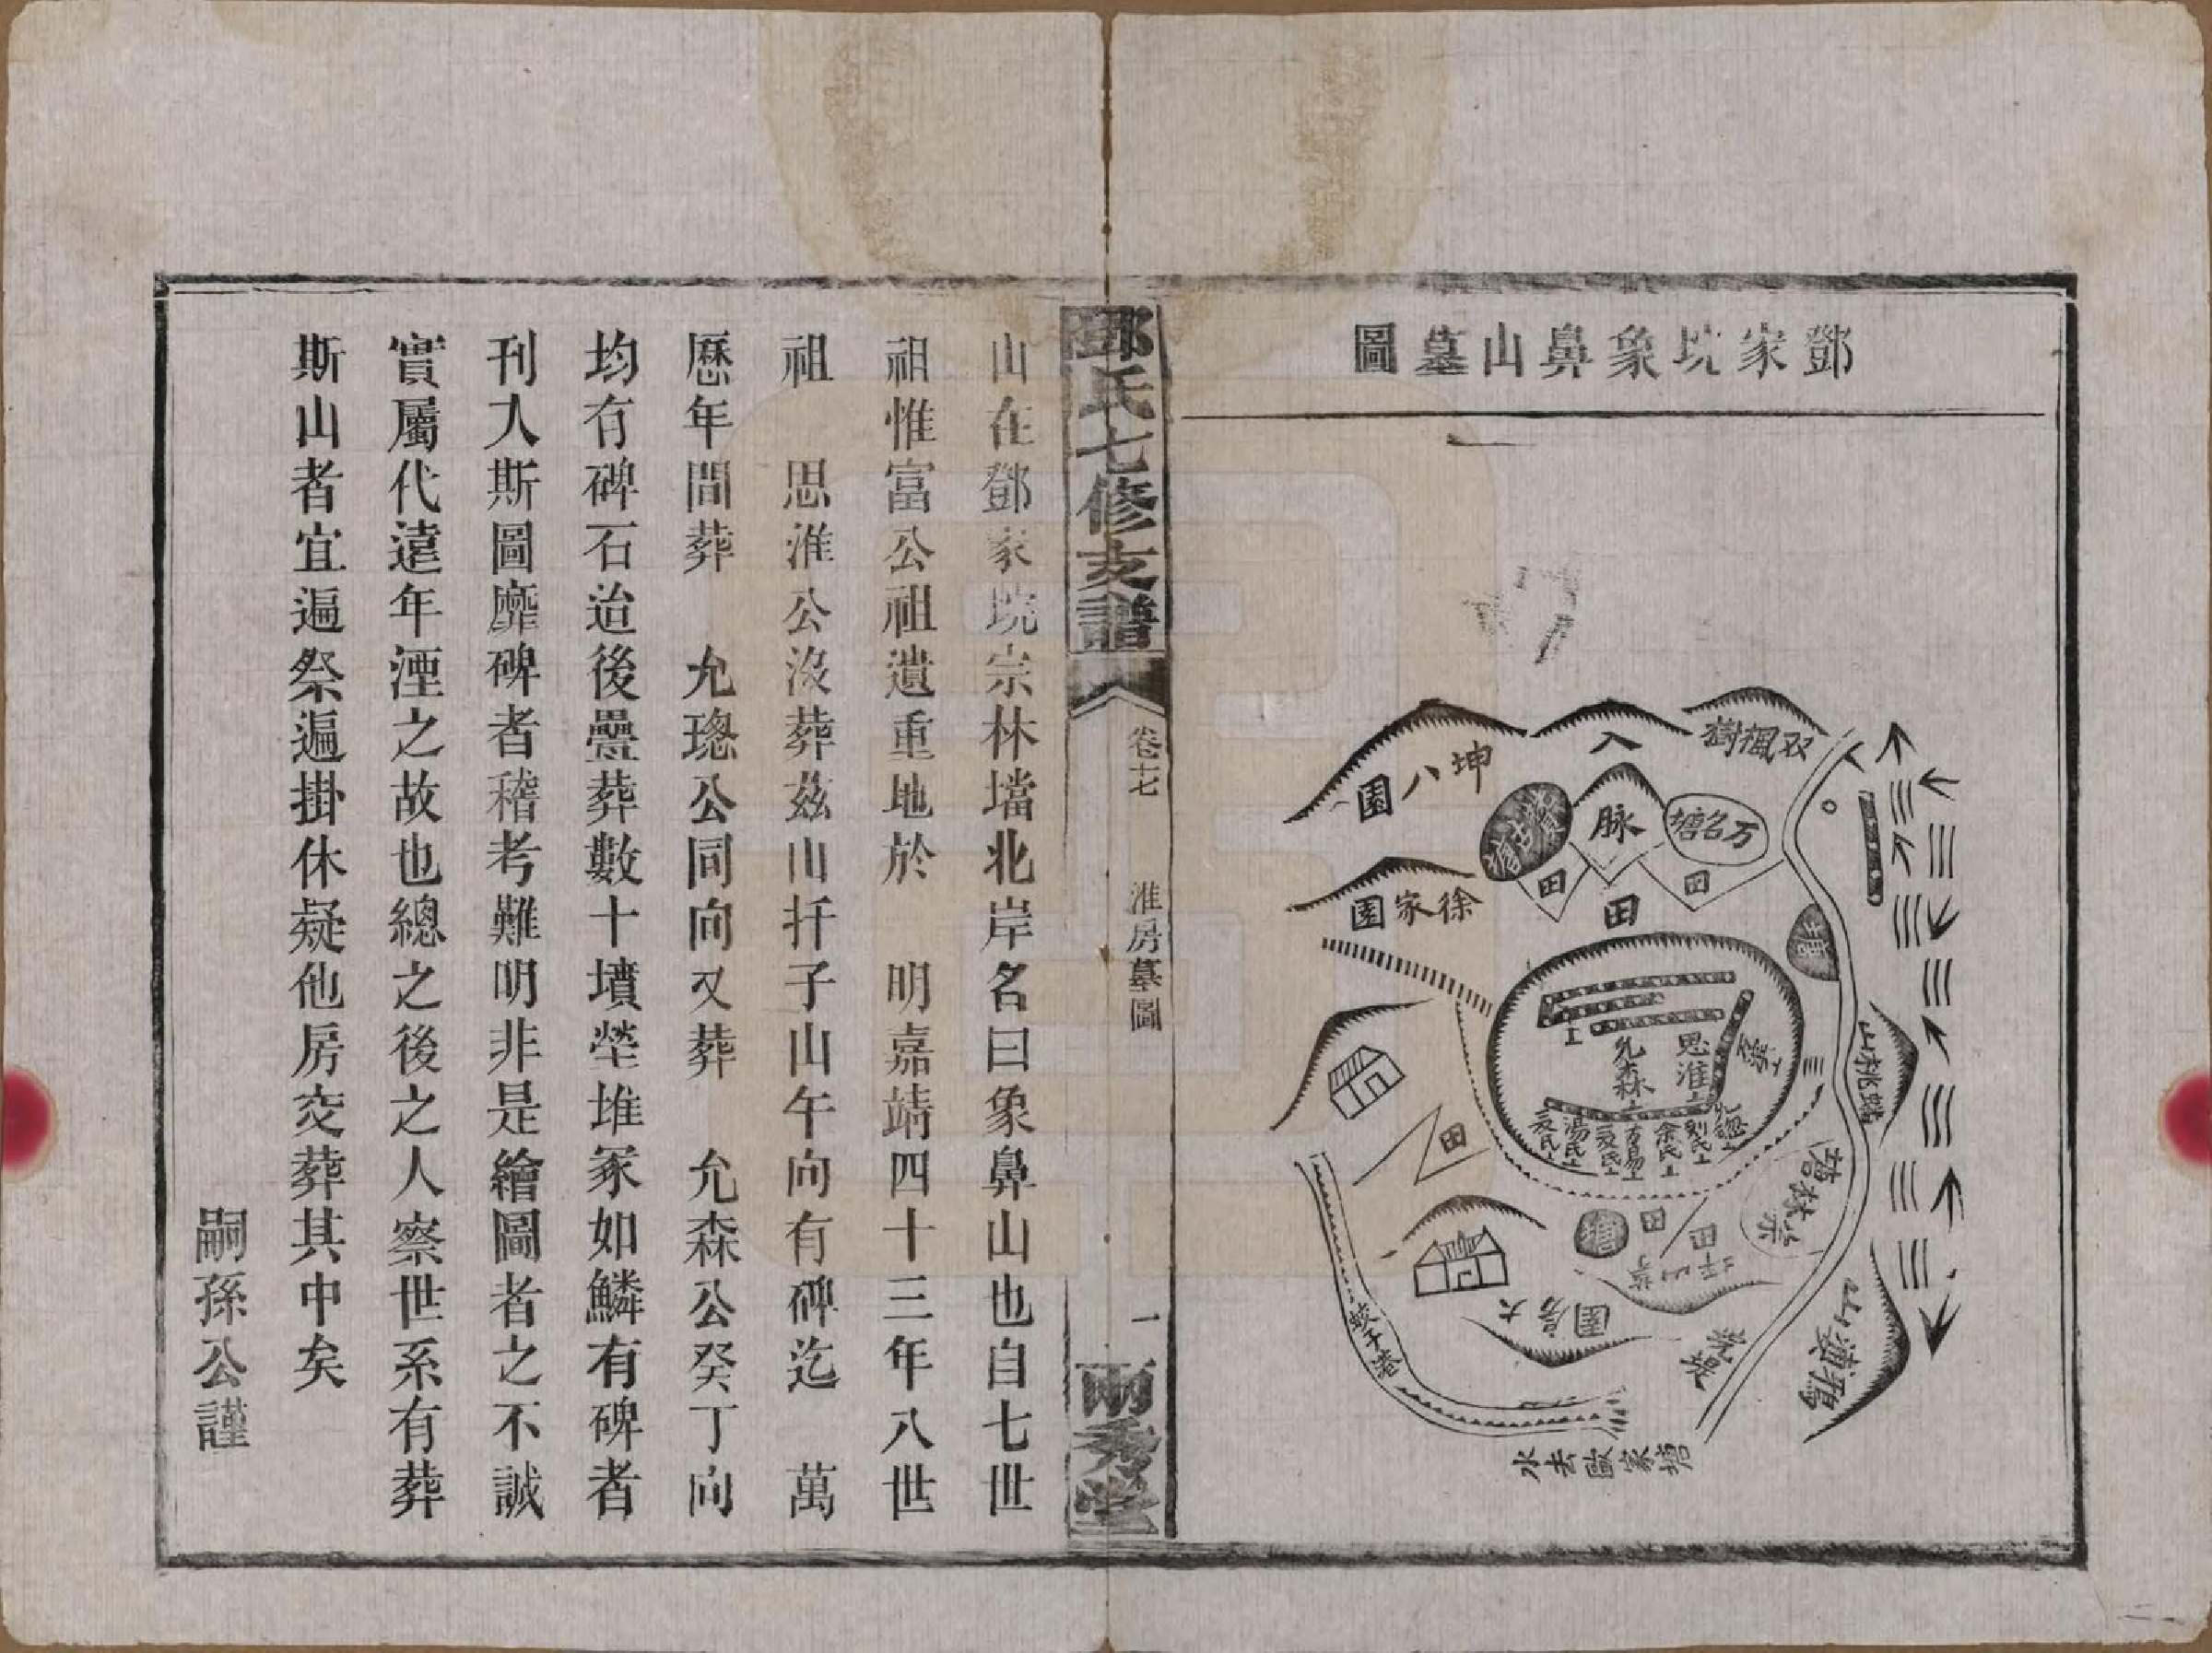 鄧家垸象鼻山墓圖
双楓樹
入
坤八園
脉
万名塘
田
田
田
徐家園
塘
思淮
允森
余氏
湯氏
山桃
宗林塘
田
塘
田
田
大房園
蛟子港
塘家歐去水
鄧氏七修支譜
卷十七
淮房墓圖
一
兩秀堂
山在鄧家垸宗林壋北岸名曰象鼻山也自七世
祖惟富公祖遺重地於 明嘉靖四十三年八世
祖 思淮公沒葬茲山扦子山午向有碑迄 萬
歷年間葬 允璁公同向又葬 允森公癸丁向
均有碑石迨後疊葬數十墳塋堆冢如鱗有碑者
刊入斯圖靡碑者稽考難明非是繪圖者之不誠
實屬代遠年湮之故也總之後之人察世系有葬
斯山者宜遍祭遍掛休疑他房交葬其中矣
嗣孫公謹